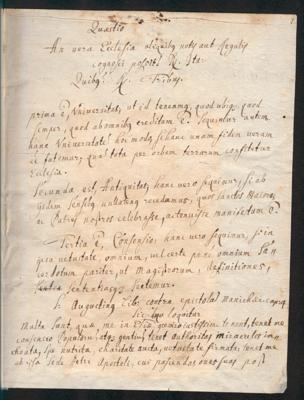 Quæstio
An vera Ecclesia aliquibus notis aut Regulis
cognosci possit? R. Ita.
Quibus? R. Tribus.
prima e, Universitas, ut id teneamus, quod ubique, quod
semper, quod ab omnibus creditum e. sequimur autem
hanc Universitatem hoc modo, si hanc unam fidem veram
ee fateamur, quam tota per orbem terrarum confitetur
Ecclesia.
Secunda est, Antiquitas; hanc vero sequimur, si ab
iisdem sensibus nullatenus recedamus, quos sanctos Maiores
ac Patres nostros celebrasse, manifestum e.
Tertia e, Consensio; hanc vero sequimur, si in
ipsa vetustate, omnium, vel certe pene omnium Sa-
cerdotum pariter, ut Magistrorum, definitiones,
sententiasque sectemur.
S. Augustinus lib. contra epistolam Manichæi
sic loquitur
Multa sunt, quæ me in gremio justissime tenent, tenet me
consensio Populorum, atque gentium; tenet authoritas miraculis in-
choata, spe nutrita, charitate aucta, vetustate firmata; tenet me
ab ipsa sede Petri Apostoli, cui pascendas oves suas post